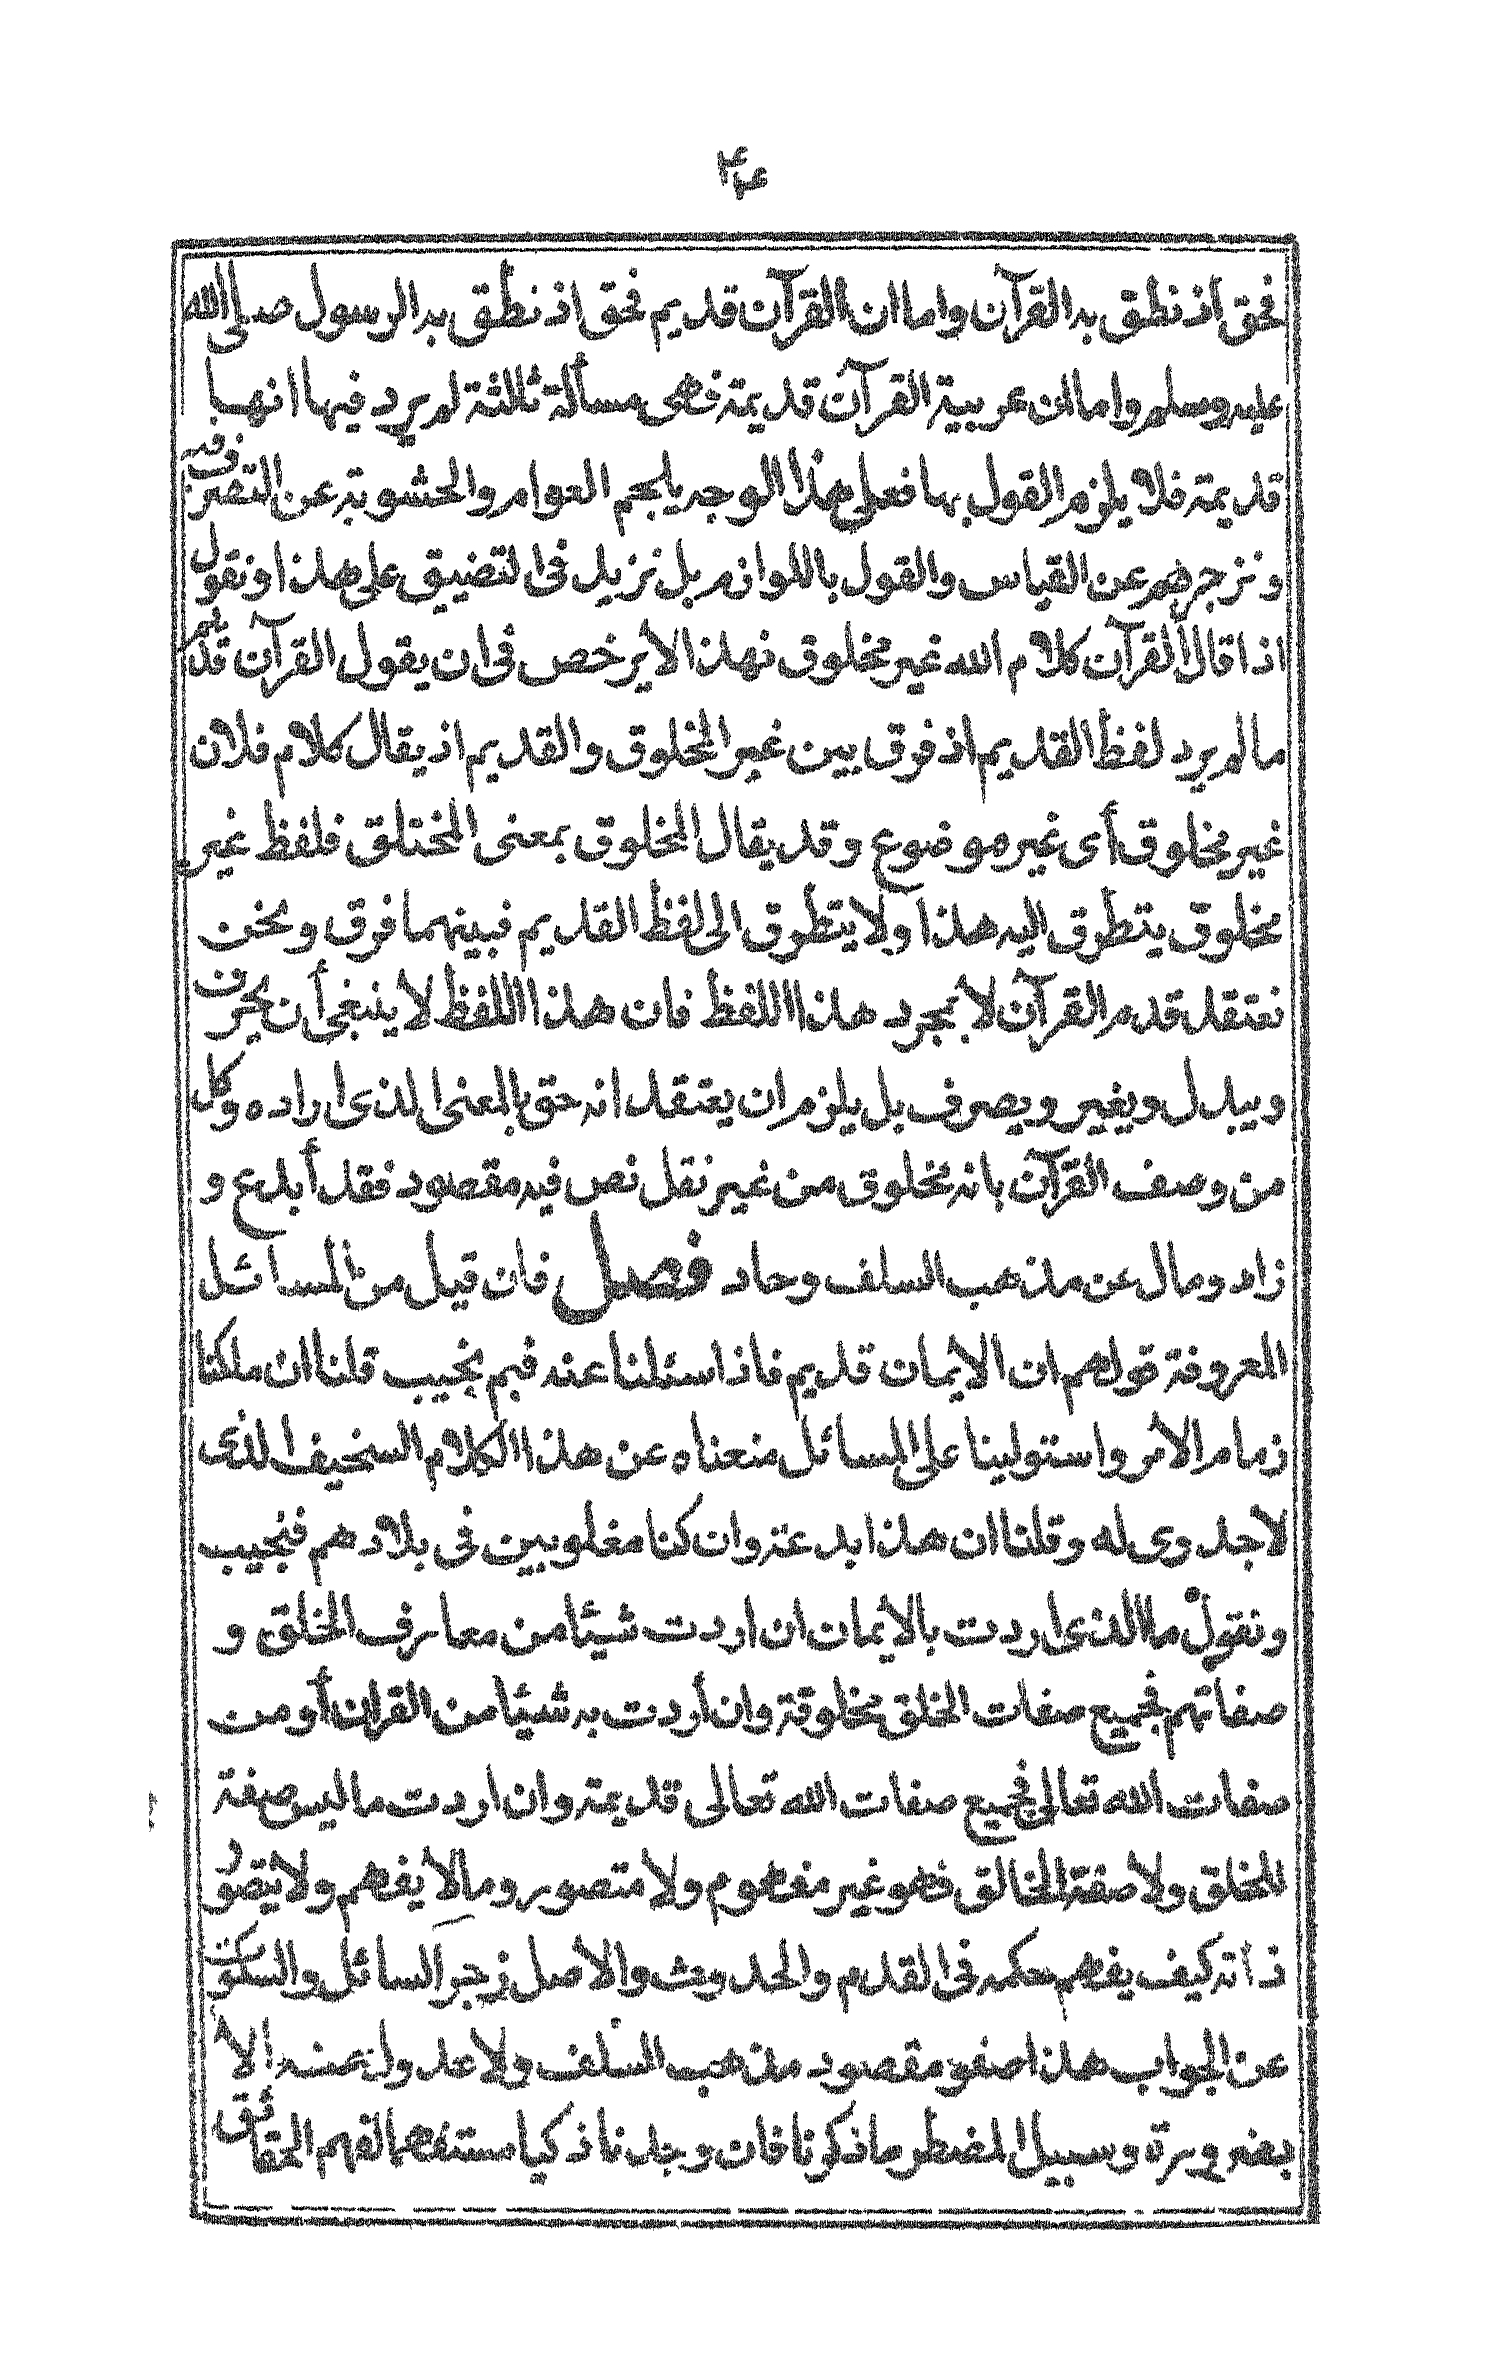 فحق اذ نطق به القرآن واما ان القرآن قديم فحق اذ نطق به الرسول صلى الله
عليه وسلم واما ان عربية القرآن قديمة فهى مسألة ثالثة لم يرد فيها انها
قديمة فلا يلزم القول بها فعلى هذا الوجه يلجم العوام والحشوية عن التصرف فيه
ونزجرهم عن القياس والقول باللوازم بل نزيد فى التضييق على هذا ونقول
اذا قال القرآن كلام الله غير مخلوق فهذا لا يرخص فى ان يقول القرآن قديم
مالم يرد لفظ القديم اذ فرق بين غير المخلوق والقديم اذ يقال كلام فلان
غير مخلوق أى غير موضوع وقد يقال المخلوق بمعنى المختلق فلفظ غير
مخلوق يتطرق اليه هذا ولا يتطرق الى لفظ القديم فبينهما فرق ونحن
نعتقد قدم القرآن لا بمجرد هذا اللفظ فان هذا اللفظ لا ينبغى أن يحرف
ويبدل ويغير ويصرف بل يلزم ان يعتقد انه حق بالمعنى الذى اراده وكل
من وصف القرآن بانه مخلوق من غير نقل نص فيه مقصود فقد أبدع و
زاد ومال عن مذهب السلف وحاد فصل فان قيل من المسائل
المعروفة قولهم ان الايمان قديم فاذا سئلنا عنه فبم نجيب قلنا ان ملكنا
زمام الامر واستولينا على المسائل منعناه عن هذا الكلام السخيف الذى
لا جدوى له وقلنا ان هذا بدعة وان كنا مغلوبين فى بلادهم فنجيب
ونقول ما الذى اردت بالايمان ان اردت شيئا من معارف الخلق و
صفاتهم فجميع صفات الخلق مخلوقة وان أردت به شيئا من القران أو من
صفات الله تعالى فجميع صفات الله تعالى قديمة وان اردت ماليس صفة
للخلق ولا صفة الخالق فهو غير مفهوم ولا متصور ومالا يفهم ولا يتصور
ذاته كيف يفهم حكمه فى القدم والحدوث والاصل زجر السائل والسكوت
عن الجواب هذا صفو مقصود مذهب السلف ولا عدول عنه الا
بضرورة وسبيل المضطر ماذكرنا فان وجدنا ذكيا مستفهما لفهم الحقائق